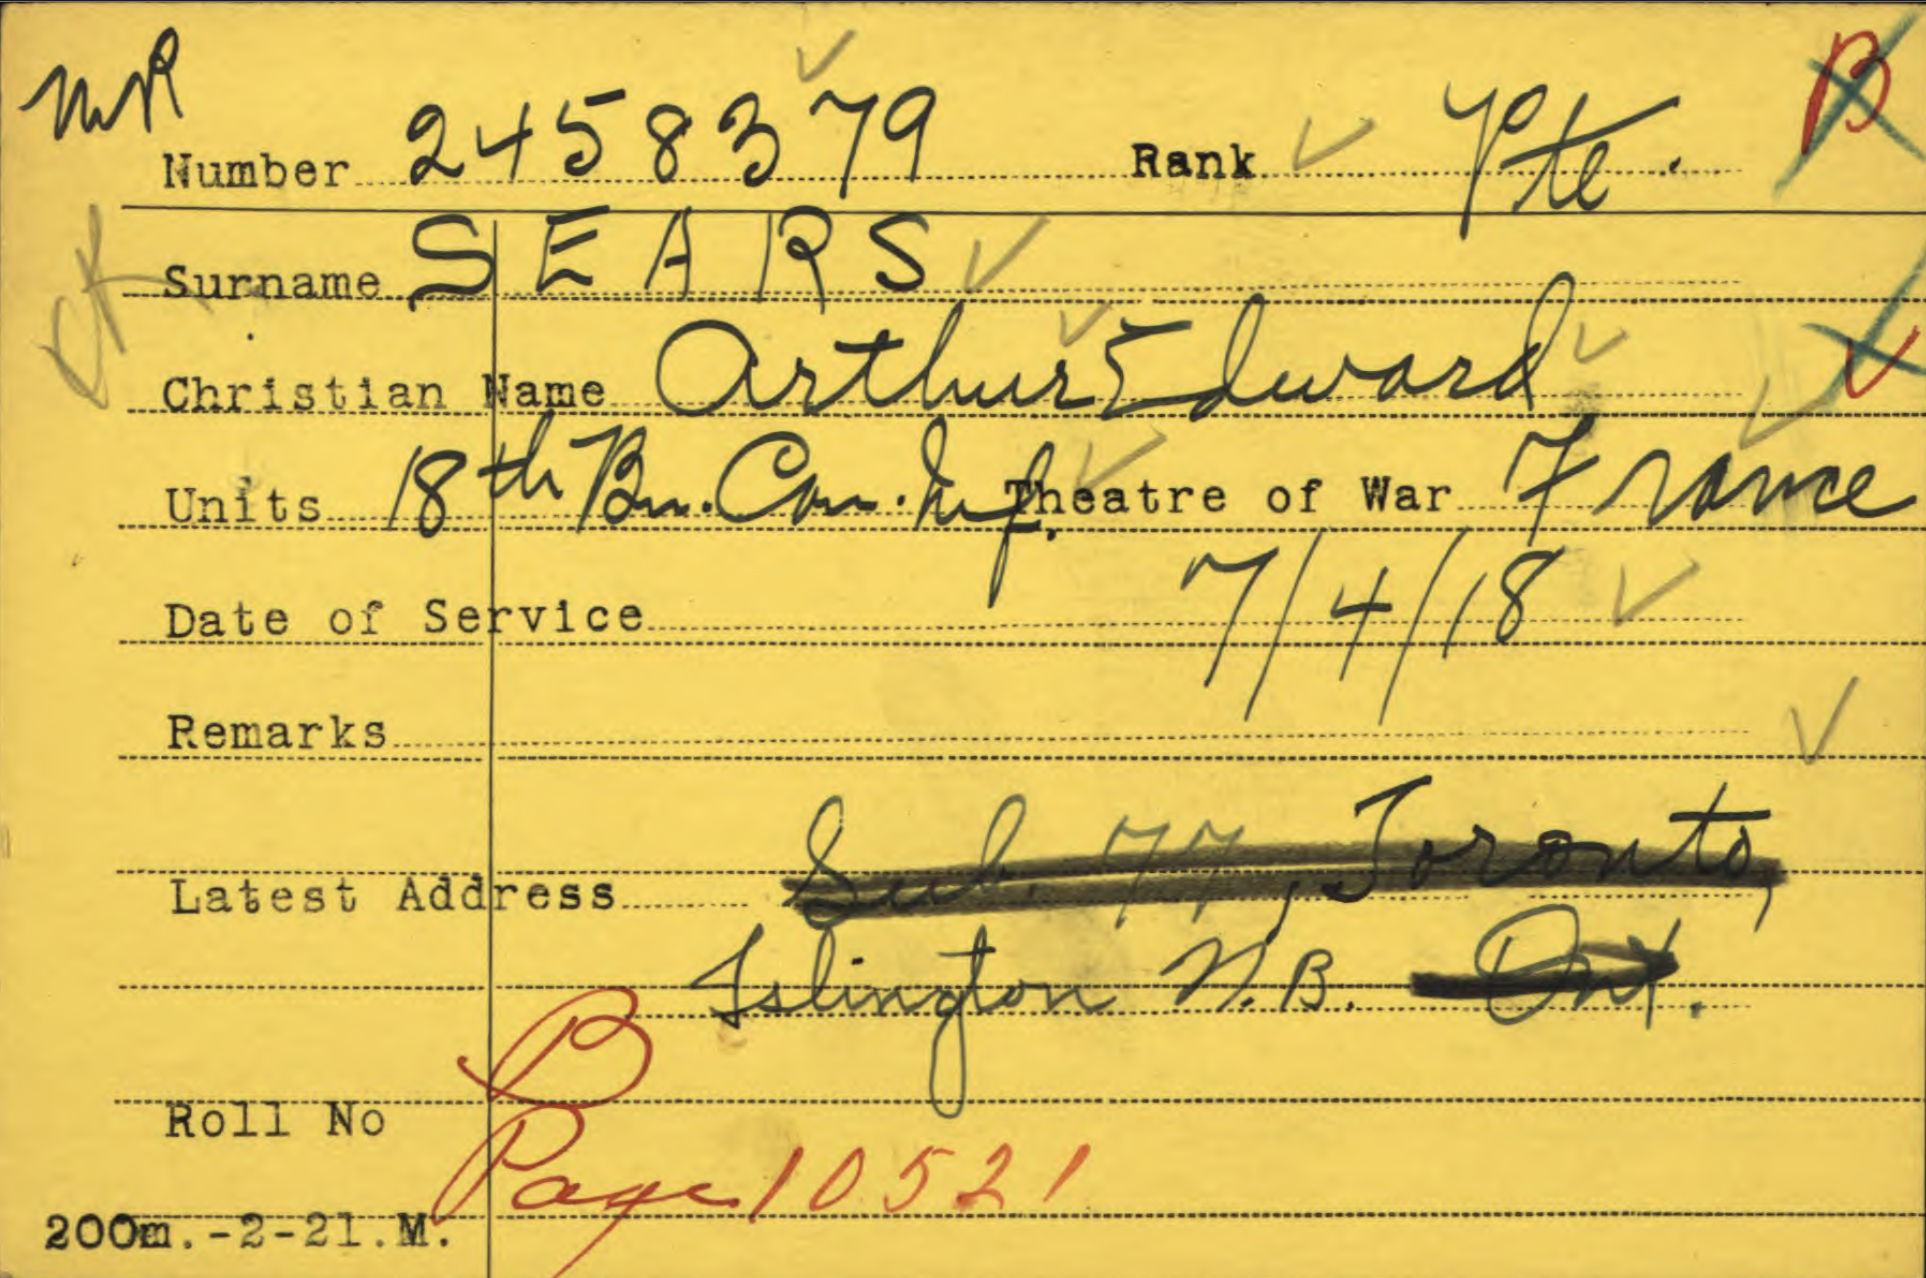 MR
Number 2458379 Rank Pte. B
Surname SEARS
CK
Christian Name Arthur Edward
Units 18th Bn. Can. Inf. Theatre of War France
Date of Service 7/4/18
Remarks
Latest Address Sub. 77, Toronto,
Islington N.B. Ont.
B
Roll No
Page 10521
200m.-2-21.M.